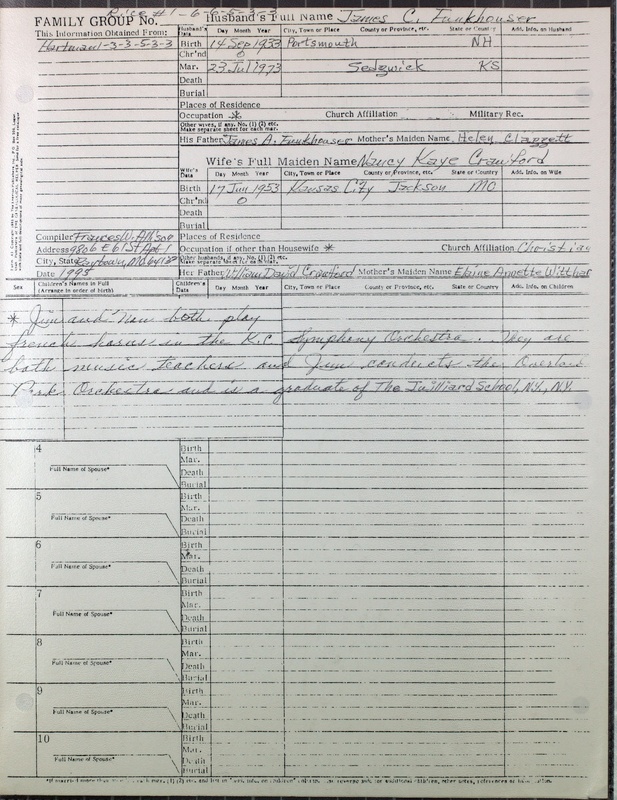 Price #1-6-6-5-3-3
FAMILY GROUP No. Husband's Full Name James C. Funkhouser
This Information Obtained From: Husband's Data Day Month Year City, Town or Place County or Province, etc. State or Country Add. Info. on Husband
Hartman1-3-3-5-3-3 Birth 14 Sep 1933 Portsmouth NH
Chr'nd
Mar. 23 Jul 1973 Sedgwick KS
Death
Burial
Places of Residence
Occupation * Church Affiliation Military Rec.
Other wives, if any. No. (1) (2) etc.
Make separate sheet for each mar.
His Father James A. Funkhouser Mother's Maiden Name Helen Claggett
Wife's Full Maiden Name Nancy Kaye Crawford
Wife's Data Day Month Year City, Town or Place County or Province, etc. State or Country Add. Info. on Wife
Birth 17 Jun 1953 Kansas City Jackson MO
Chr'nd
Death
Burial
Compiler Frances W. Places of Residence
Address 9806 E 61 St Apt 1 Occupation if other than Housewife * Church Affiliation Christian
City, State Raytown, MO Other husbands, if any. No. (1) (2) etc.
Make separate sheet for each mar.
Date 1995 Her Father William David Crawford Mother's Maiden Name Elaine Annette
Sex Children's Names in Full Children's Data Day Month Year City, Town or Place County or Province, etc. State or Country Add. Info. on Children
(Arrange in order of birth)
* Jim and Nan both play
french horns in the K.C Symphony Orchestra. They are
both music teachers and Jim conducts the Overland
Park Orchestra and is a graduate of The Juilliard School, N.Y., N.Y.
4 Birth
Mar.
Full Name of Spouse* Death
Burial
5 Birth
Mar.
Full Name of Spouse* Death
Burial
6 Birth
Mar.
Full Name of Spouse* Death
Burial
7 Birth
Mar.
Full Name of Spouse* Death
Burial
8 Birth
Mar.
Full Name of Spouse* Death
Burial
9 Birth
Mar.
Full Name of Spouse* Death
Burial
10 Birth
Mar.
Full Name of Spouse* Death
Burial